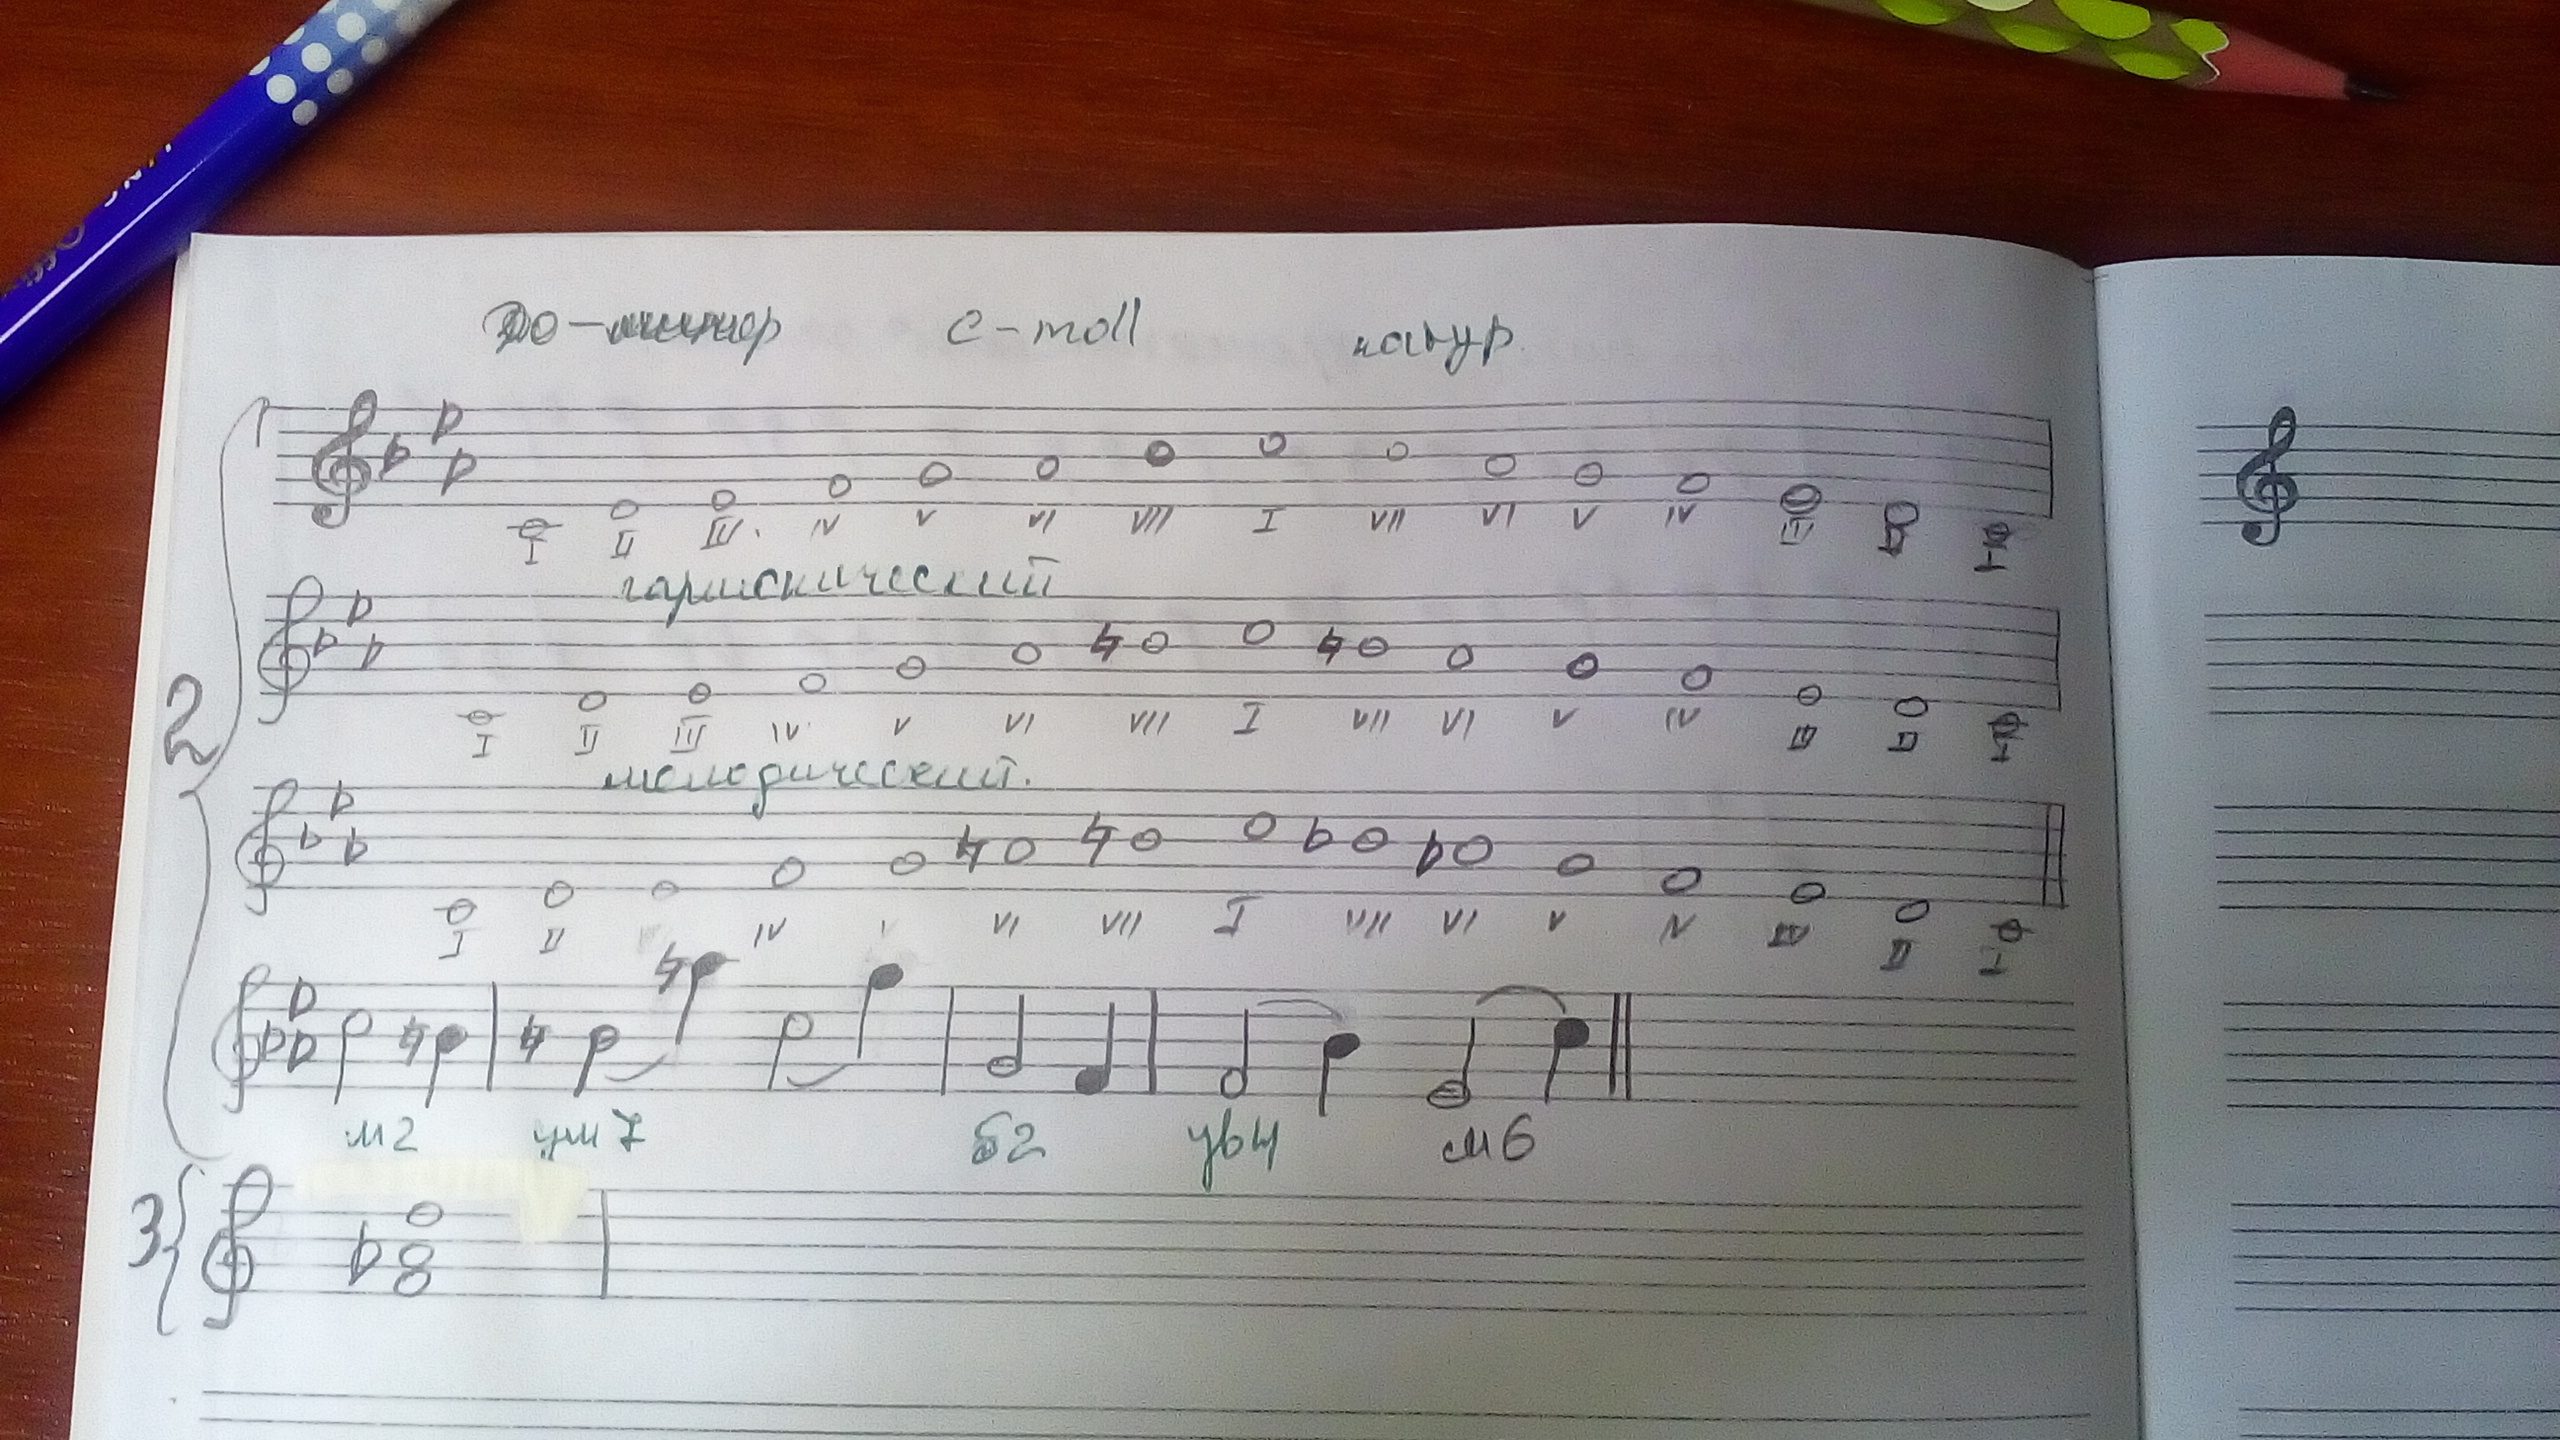 До-минор c-moll натур.
I II III. IV V VI VII I VII VI V IV III II I
гармонический
I II III IV V VI VII I VII VI V IV III II I
2
мелодический.
I II IV V VI VII I VII VI V IV III II I
м2 ум7 б2 ув4 м6
3